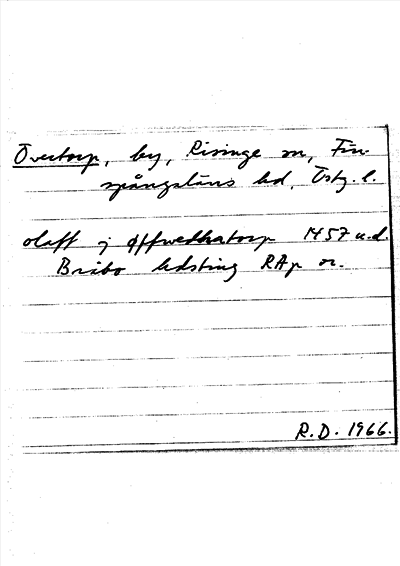 Övertorp, by, Risinge sn, Fin-
spångsläns hd, Östg. l.
olaff j øffwedhatorp 1457 u.d.
Bråbo hdsting RAp or.
R.D. 1966.